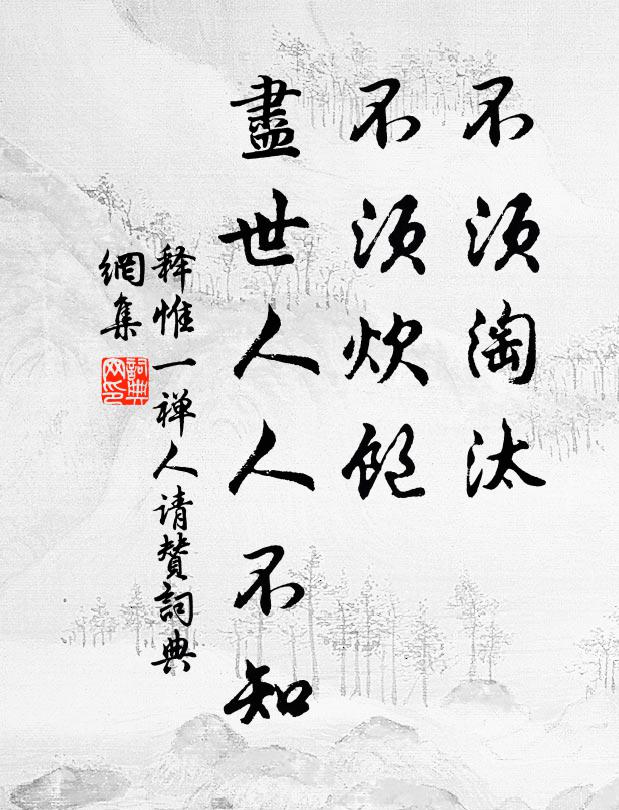 不须淘汰
不须炊飽
盡世人人不知
释惟一禅人请赞詞典
網集
詞典
网印